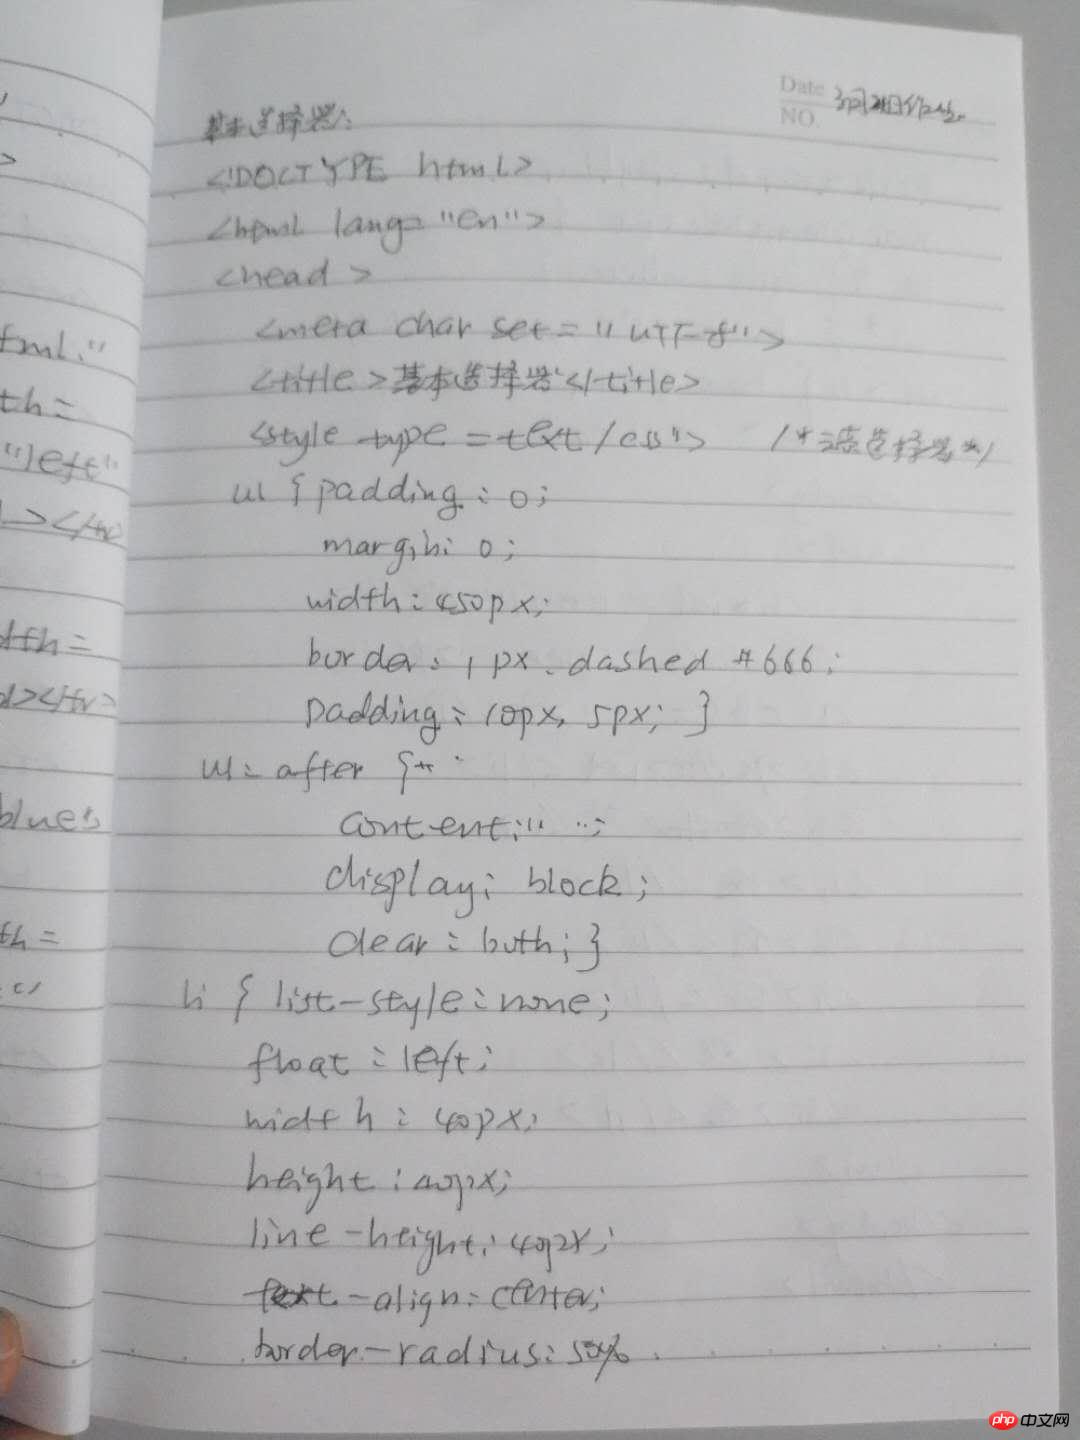 Date 3月21日作业
NO.
基本选择器:
<!DOCTYPE html>
<html lang="en">
<head>
<meta charset="UTF-8">
<title>基本选择器</title>
<style type=text/css"> /*元素选择器*/
ul { padding: 0;
margin: 0;
width: 450px;
border: 1px dashed #666;
padding: 10px, 5px; }
ul: after {*
content: " ";
display: block;
clear: both; }
li { list-style: none;
float: left;
width: 40px;
height: 40px;
line-height: 40px;
text-align: center;
border-radius: 50%
tml."
th=
"left"
></tr>
dth=
d></tr>
blue"
th=
php 中文网